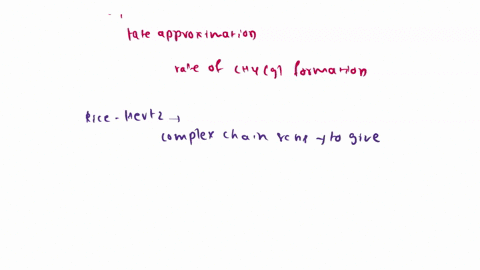 tate approximation
rate of CH4(g) formation
Rice-Hertz →
complex chain rxns → to give